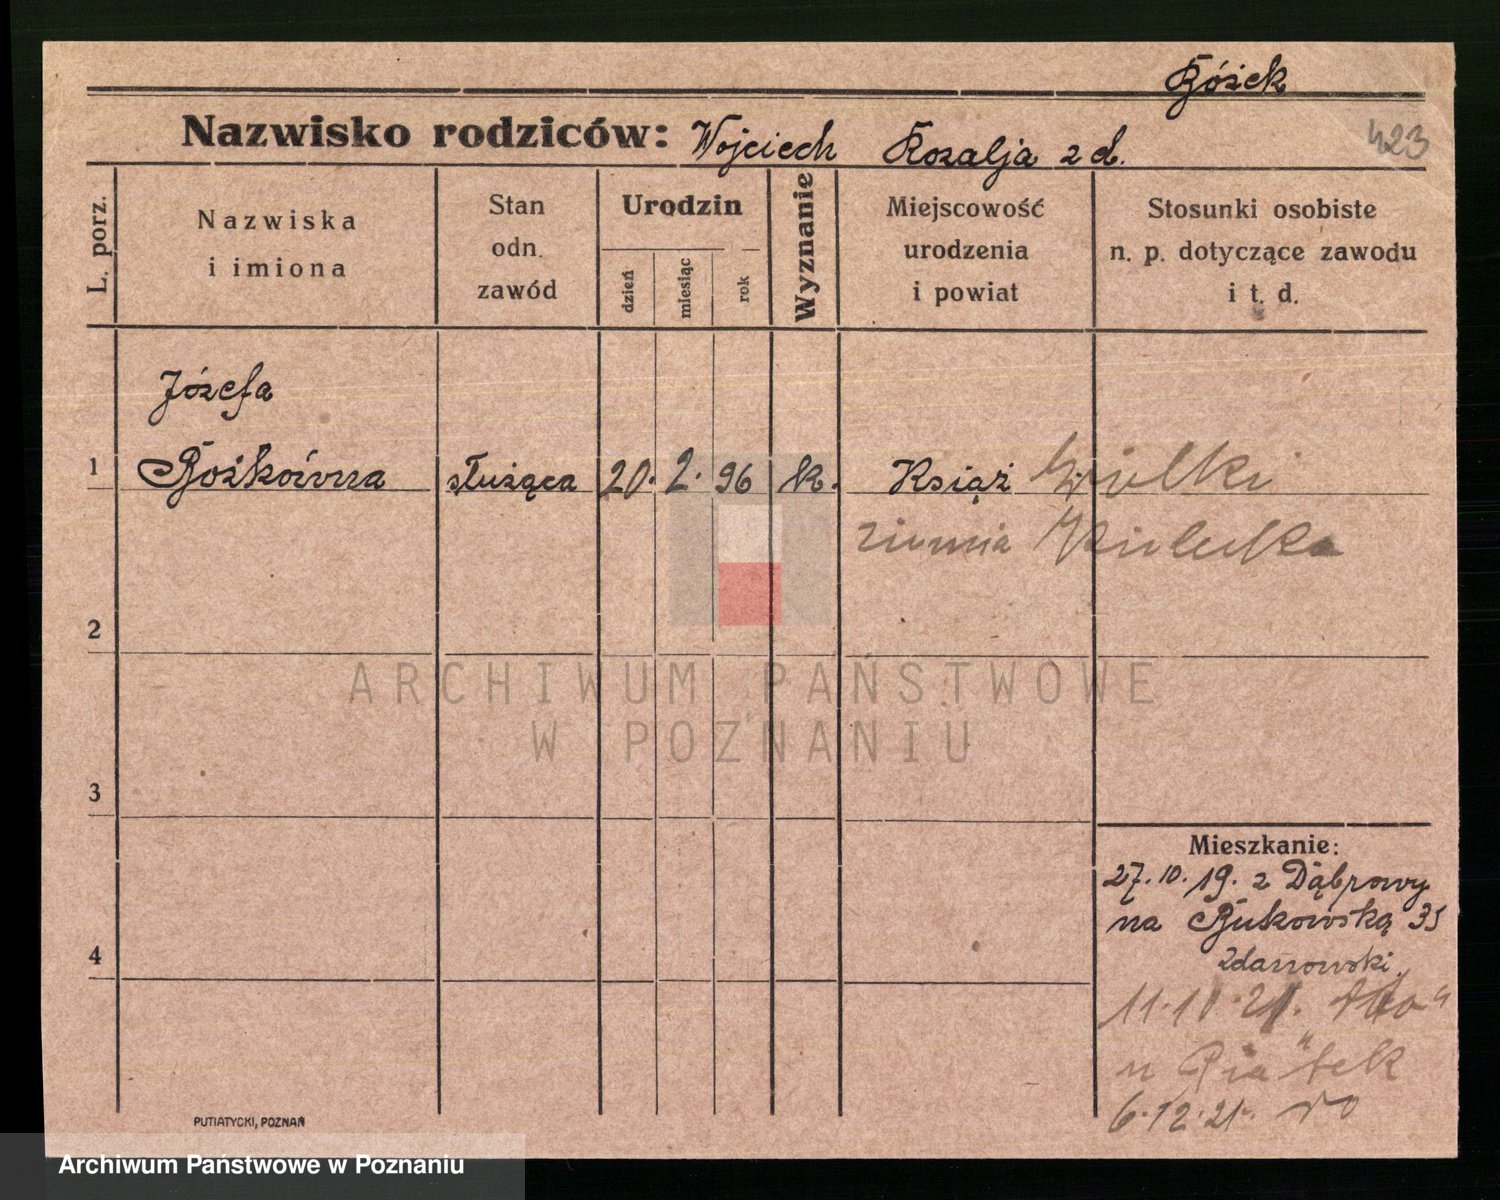 Bożek
423
Nazwisko rodziców: Wojciech Rozalja z d.
L. porz.
Nazwiska
i imiona
Stan
odn.
zawód
Urodzin
dzień
miesiąc
rok
Wyznanie
Miejscowość
urodzenia
i powiat
Stosunki osobiste
n. p. dotyczące zawodu
i t. d.
Józefa
1 Bożkówna służąca 20. 2. 96 k. Książ Wielki
ziemia Kielecka
2
ARCHIWUM PAŃSTWOWE
W POZNANIU
3
Mieszkanie:
27. 10. 19. z Dąbrowy
na Bukowską 35
Zdanowski.
4
11.11.21.
u Piątek
6.12.21.
PUTIATYCKI, POZNAŃ
Archiwum Państwowe w Poznaniu